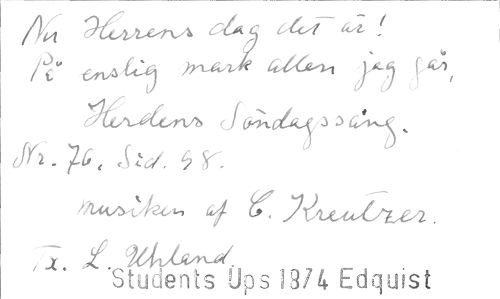 Nu Herrens dag det är!
På enslig mark allen jag går,
Herdens Söndagssång.
Nr. 76. Sid. 98.
musiken af C. Kreutzer.
Tx. L. Uhland.
Students Ups 1874 Edquist